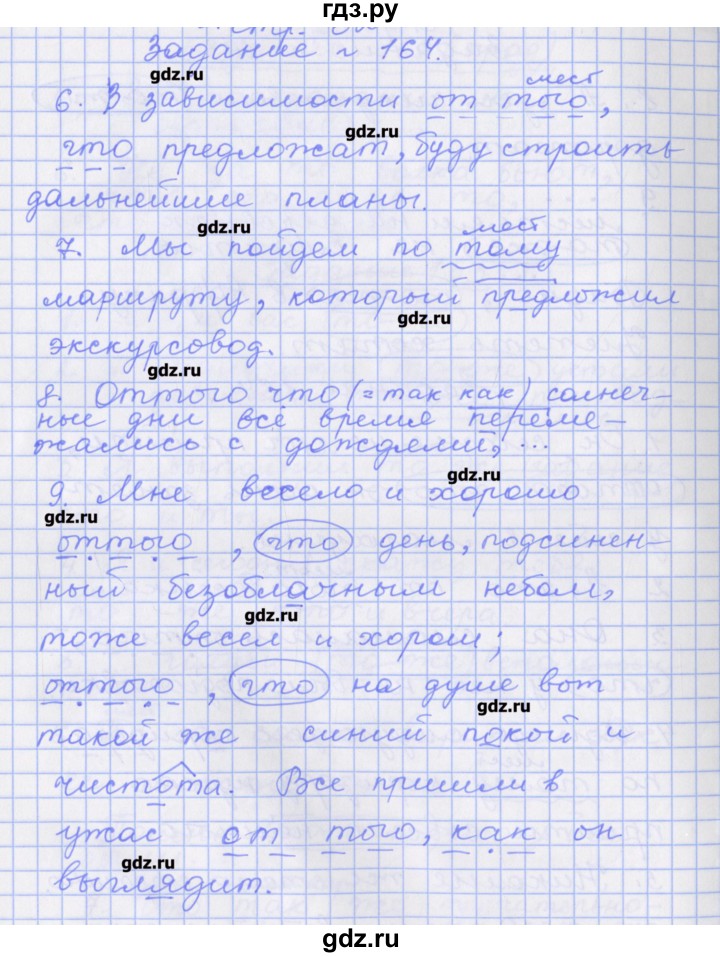 гдз.ру
Задание № 164.
gdz.ru
мест
6. В зависимости от того,
gdz.ru
что предложат, буду строить
дальнейшие планы.
gdz.ru
мест
7. Мы пойдем по тому
маршруту, который предложил
gdz.ru
экскурсовод.
gdz.ru
8. Оттого что (= так как) солнеч-
ные дни все время переме-
жались с дождями, ...
gdz.ru
9. Мне весело и хорошо
gdz.ru
оттого, что день, подсинен-
ный безоблачным небом,
gdz.ru
тоже весел и хорош;
оттого, что на душе вот
gdz.ru
такой же синий покой и
чистота. Все пришли в
ужас от того, как он
gdz.ru
выглядит.
gdz.ru